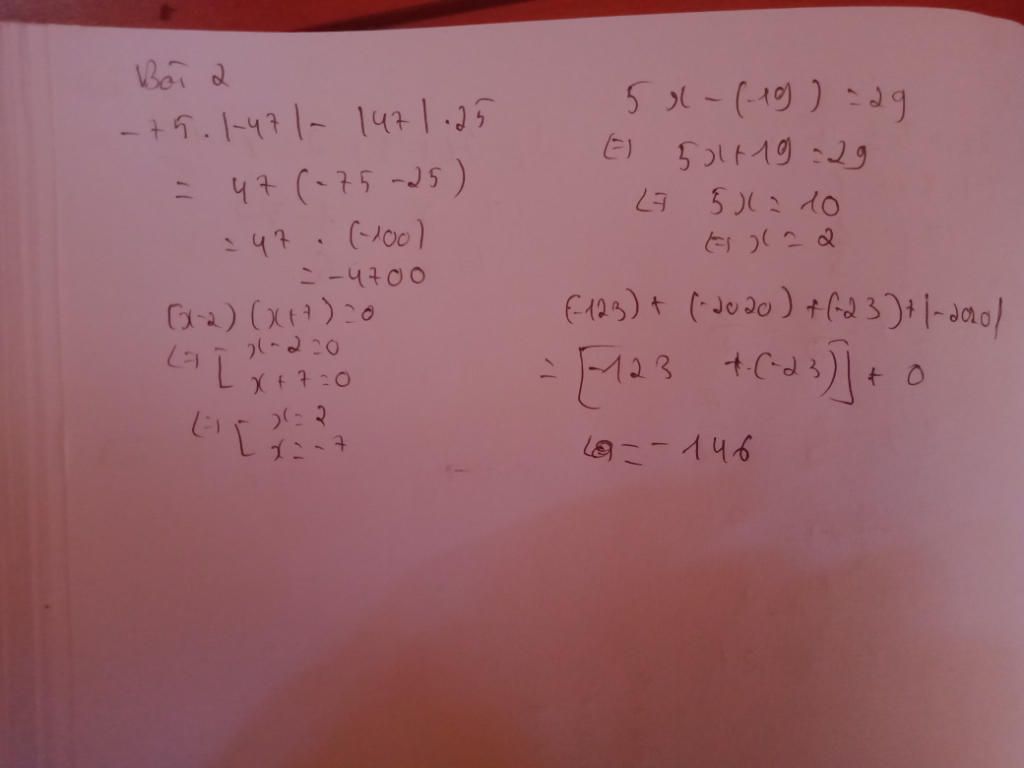 Bài 2
-75.|-47|- |47|.25
= 47 (-75 -25)
= 47 . (-100)
= -4700
(x-2) (x+7)=0
<=> [ x-2=0
x+7=0
<=> [ x=2
x=-7
5x-(-19)=29
<=> 5x+19=29
<=> 5x=10
<=> x=2
(-123)+ (-2020) +(-23)+|-2020|
= [-123 +(-23)] + 0
= -146